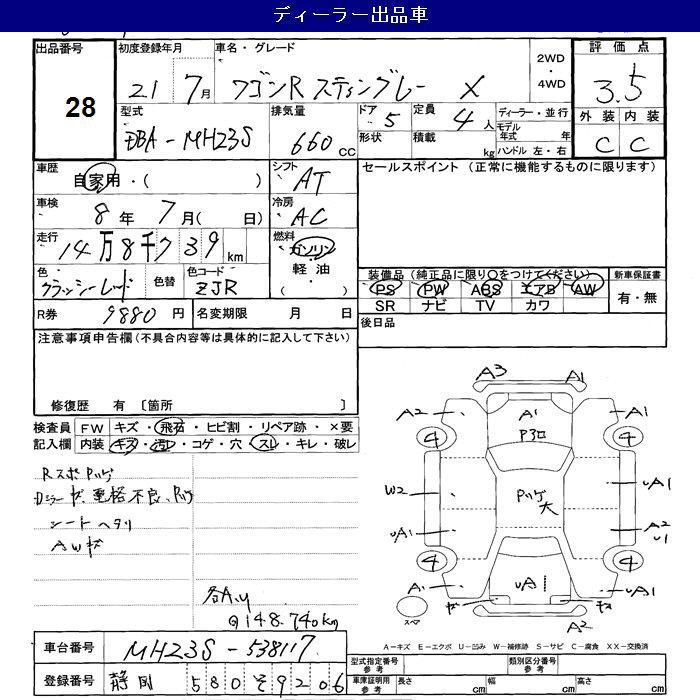 ディーラー出品車
出品番号 28
初度登録年月 21 7月
車名・グレード ワゴンR スティングレー X
2WD・4WD
評価点 3.5
型式 DBA-MH23S
排気量 660cc
ドア 5
定員 4人
形状 積載 kg
ディーラー・並行
モデル年式 年
ハンドル 左・右
外装 C 内装 C
車歴 自家用・( )
シフト AT
セールスポイント (正常に機能するものに限ります)
車検 8年 7月( 日)
冷房 AC
走行 14万8千739km
燃料 ガソリン 軽油 ( ・ )
色 クラッシーレッド 色替 色コード ZJR
装備品 (純正品に限り○をつけてください) 新車保証書
PS PW ABS エアB AW 有・無
SR ナビ TV カワ
R券 9880円 名変期限 月 日
後日品
注意事項申告欄(不具合内容等は具体的に記入して下さい)
修復歴 有 〔箇所 〕
検査員 FW キズ・飛石・ヒビ割・リペア跡・×要
記入欄 内装 キズ・汚レ・コゲ・穴・スレ・キレ・破レ
シートヘタリ
AWキズ
Q148.740km
A3 A1
A2 A1 A1
4 P3ロ 4
W2 Pハゲ大 uA1
uA1 A2
u1
4 4
A1 uA1 uA1
スペア A2
A=キズ E=エクボ U=凹み W=補修跡 S=サビ C=腐食 XX=交換済
車台番号 MH23S-538117
型式指定番号 参考 類別区分番号 参考
登録番号 静岡 580 そ 9206
車庫証明用 参考 長さ cm 幅 cm 高さ cm